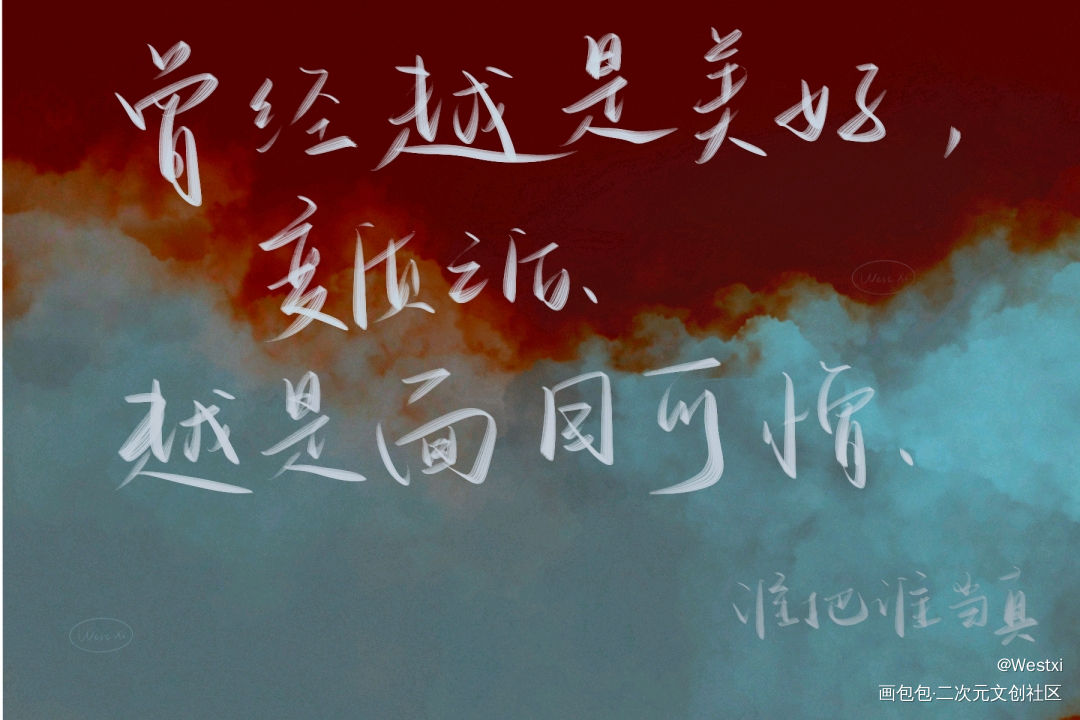 曾经越是美好，
变质之后、
越是面目可憎、
谁把谁当真
@Westxi
画包包·二次元文创社区